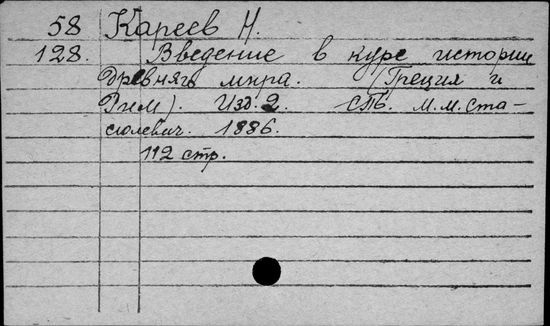 58 Кареев Н.
128. Введение в курс истории
Древняго мира. (Греция и
Рим). Изд. 2. СПб. М.М. Ста-
сюлевич. 1886.
112 стр.